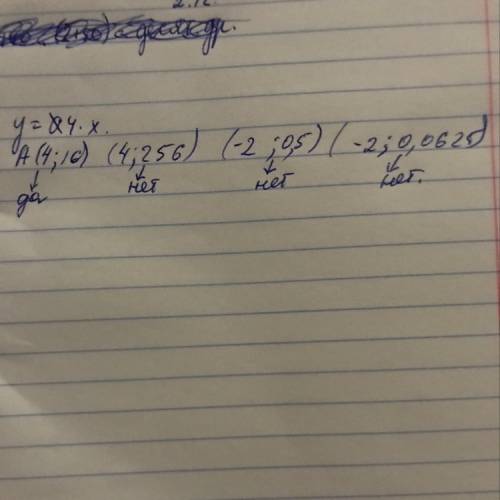 y = 4 · x.
A(4;16) (4;256) (-2;0,5) (-2;0,0625)
да нет нет нет.